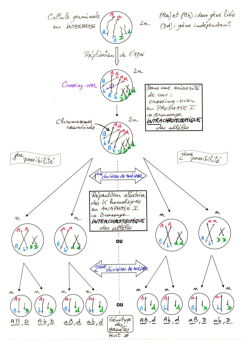 Cellule germinale
en INTERPHASE
2n
(Aa) et (Bb) : deux gènes liés
(Dd) : gène indépendant
Réplication de l'ADN
2n
Crossing-over
Dans une minorité
de cas :
crossing-over
en PROPHASE I
→ Brassage
INTRACHROMOSOMIQUE
des allèles
Chromosomes
2n
1ère possibilité
2ème possibilité
1ère division de méiose
Répartition aléatoire
des K homologues
en ANAPHASE I
→ Brassage
INTERCHROMOSOMIQUE
des allèles
n
n
n
n
ou
2ème division de méiose
n
n
n
n
n
n
n
n
ou
AB, D
Ab, D
aB, d
ab, d
Génotype
des
gamètes
AB, d
Ab, d
aB, D
ab, D